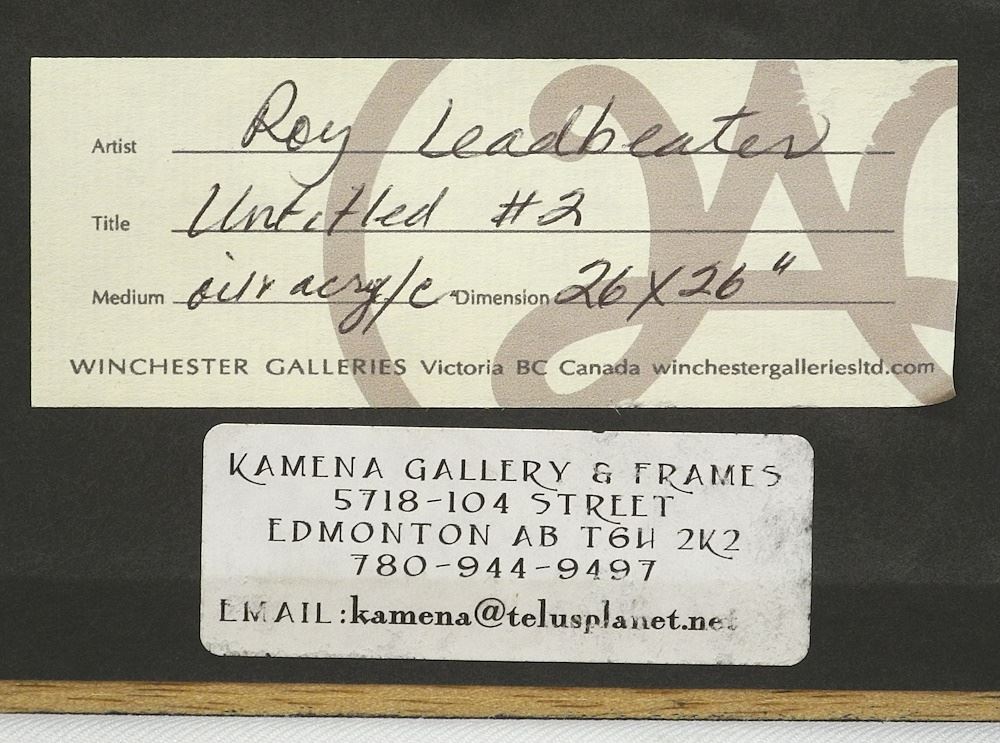 Artist Roy Leadbeater
Title Untitled #2
Medium oil & acrylic Dimension 26 X 26"
WINCHESTER GALLERIES Victoria BC Canada winchestergalleriesltd.com
KAMENA GALLERY & FRAMES
5718-104 STREET
EDMONTON AB T6H 2K2
780-944-9497
EMAIL:kamena@telusplanet.net